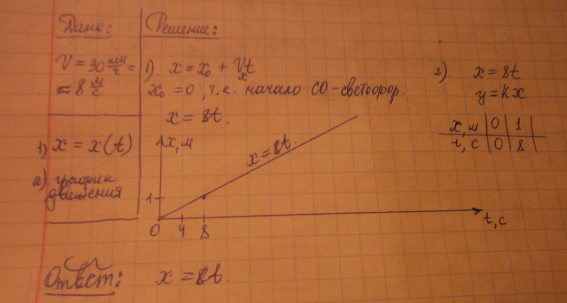 Дано:
V = 30 км/ч =
≈ 8 м/с
1) x = x(t)
2) график
движения
Решение:
1) x = x₀ + Vₓt
x₀ = 0, т.к. начало СО-светофор.
x = 8t.
2) x = 8t
y = kx
x, м | 0 | 1
t, с | 0 | 8
x, м
x = 8t.
1
0 4 8
t, с
Ответ: x = 8t.